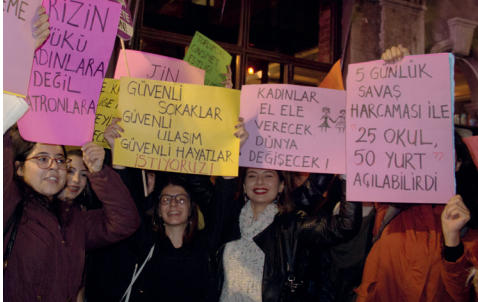 RİZİN
ÜKÜ
ADINLARA
DEĞİL
ATRONLARA
EME
JİN
GÜVENLİ
SOKAKLAR
GÜVENLİ
ULAŞIM
GÜVENLİ HAYATLAR
İSTİYORUZ!
KADINLAR
EL ELE
VERECEK
DÜNYA
DEĞİŞECEK!
5 GÜNLÜK
SAVAŞ
HARCAMASI İLE
"25 OKUL,
50 YURT"
AÇILABİLİRDİ